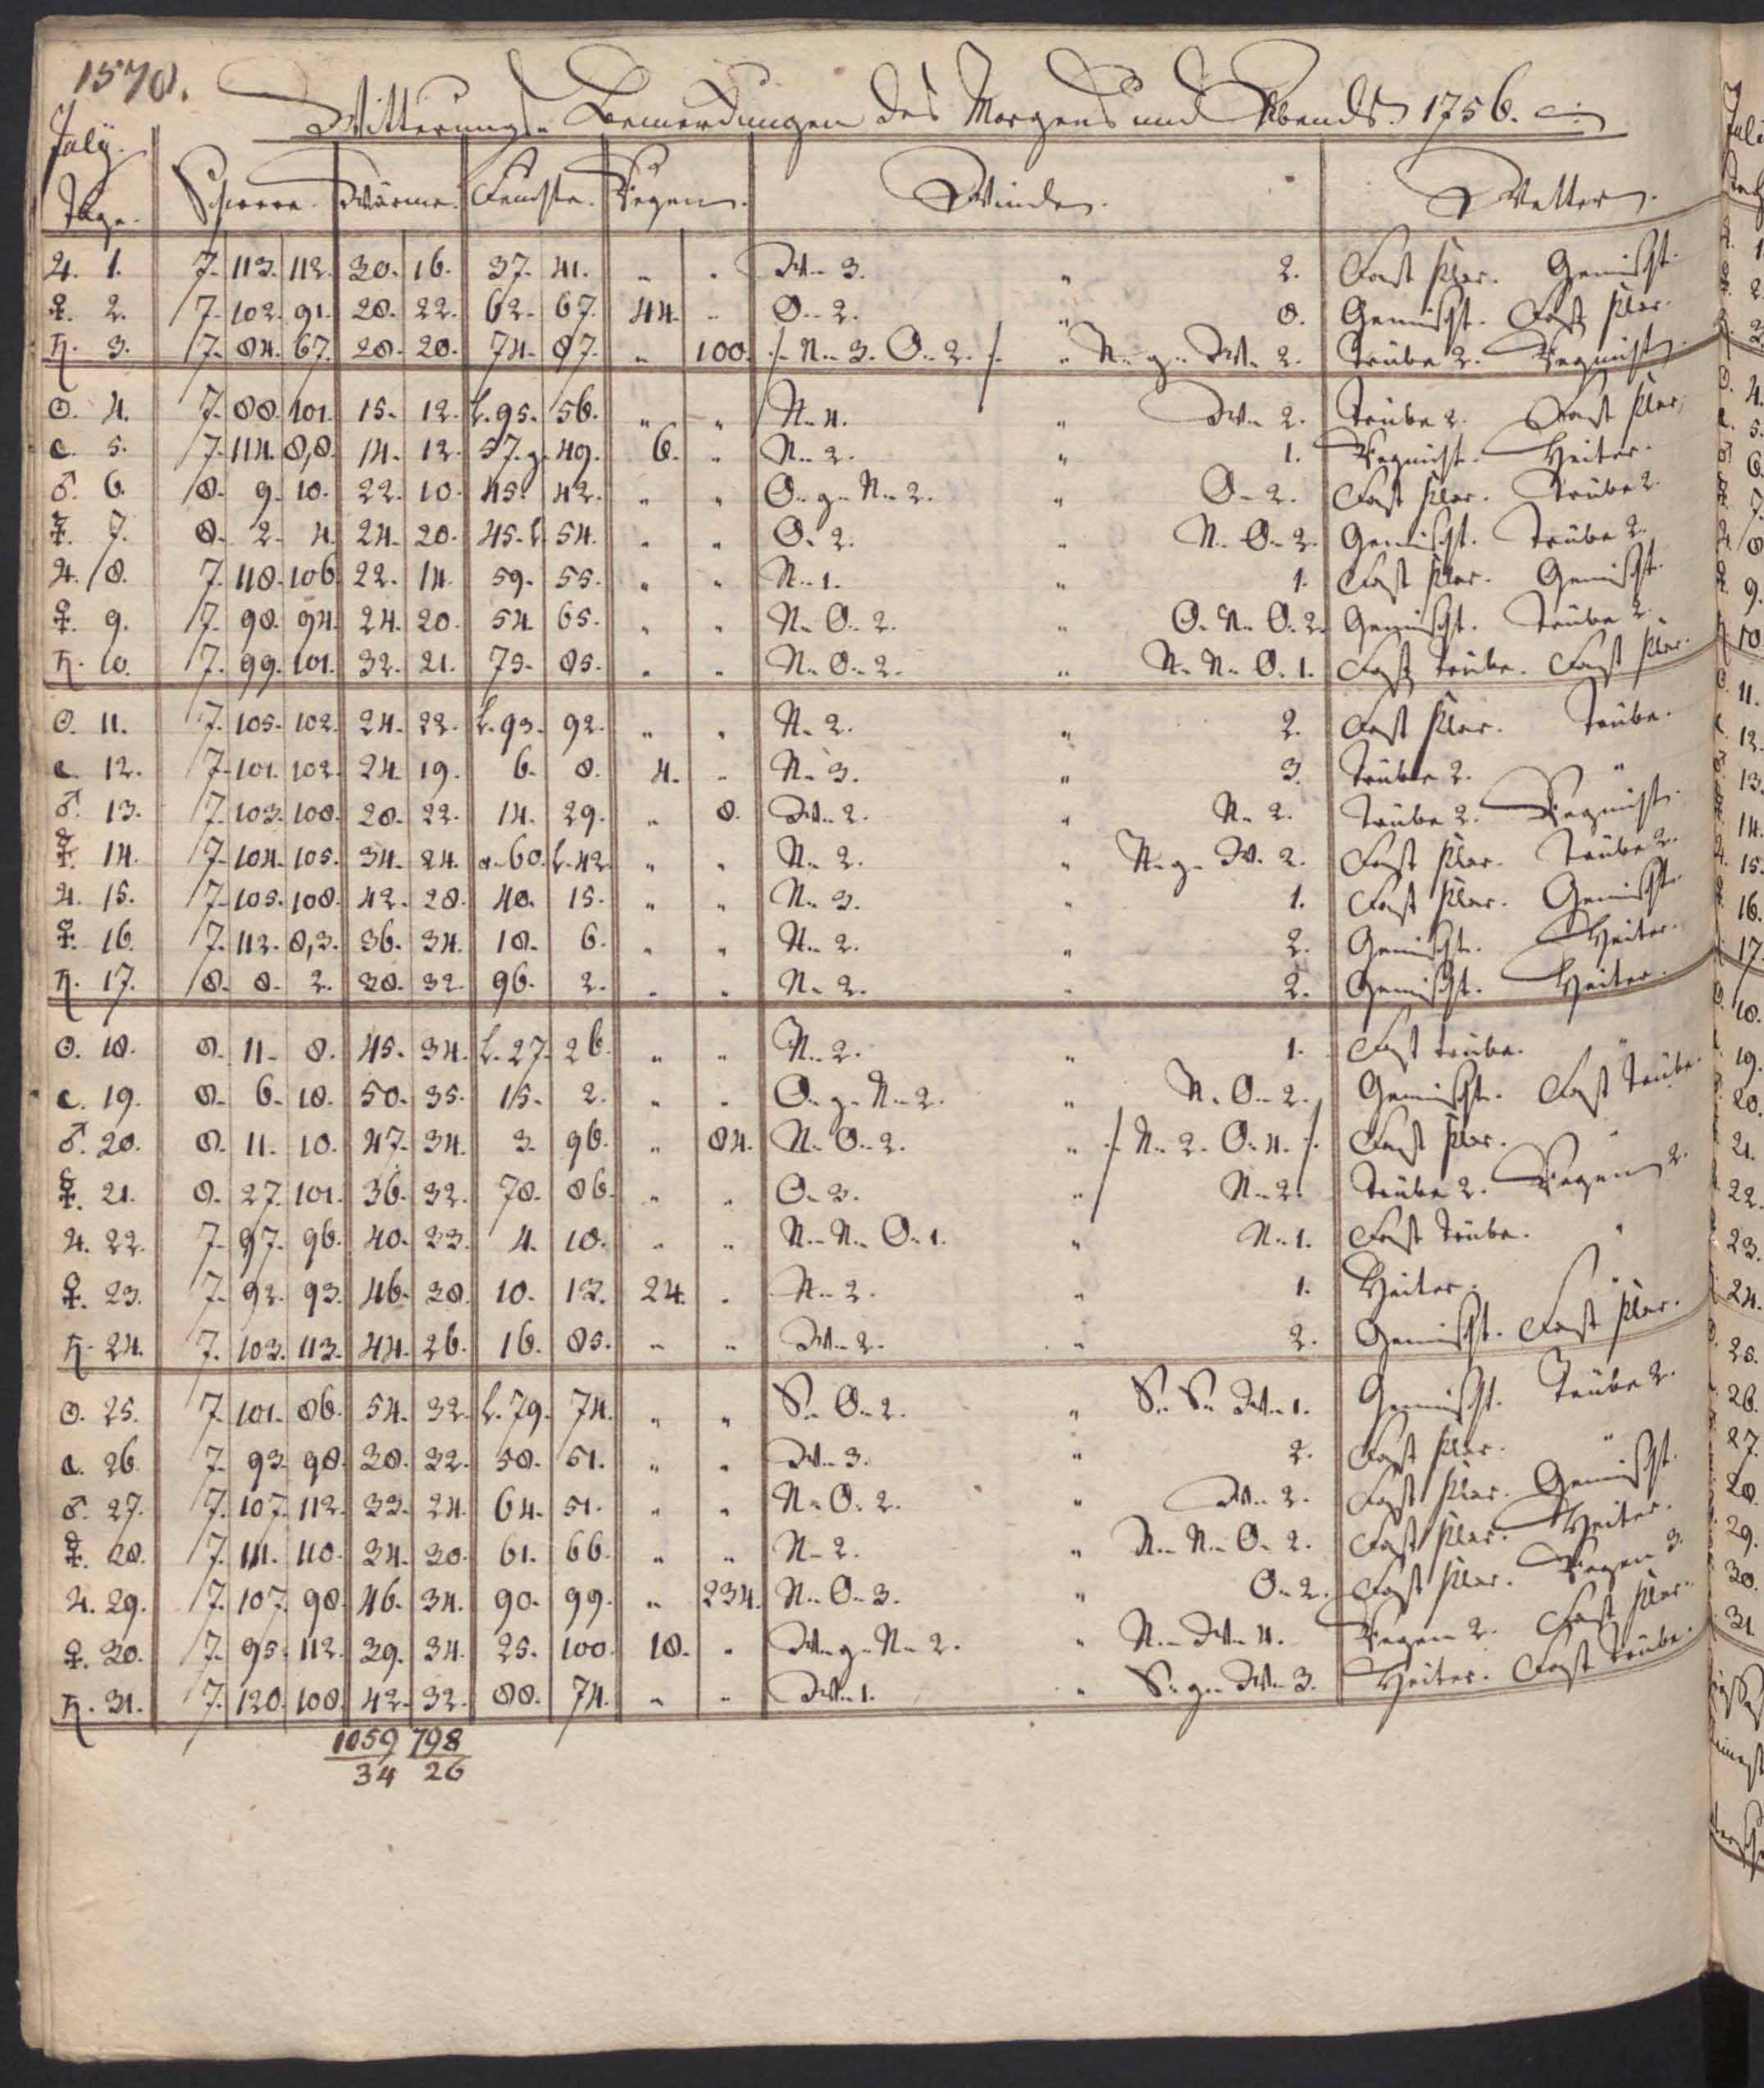 1578.
Witterungs- Bemerckungen des Morgens und Abends 1756.
July.
Tage. Schwere. Wärme. Feuchte. Regen. Winde. Wetter.
♃. 1. 7. 113. 112. 30. 16. 37. 41. „ „ W. 3. „ 2. Fast klar. Gemischt.
♀. 2. 7. 102. 91. 28. 22. 62. 67. 44. „ O. 2. „ 0. Gemischt. Fast klar.
♄. 3. 7. 84. 67. 28. 20. 74. 87. „ 100. /. N. 3. O. 2. /. „ N. g. W. 2. Trübe 2. Regnicht.
☉. 4. 7. 88. 101. 15. 12. l. 95. 56. „ „ N. 4. „ W. 2. Trübe 2. Fast klar.
☾. 5. 7. 114. 8,8. 14. 12. 57. g. 49. 6. „ N. 2. „ 1. Regnicht. Heiter.
♂. 6. 8. 9. 10. 22. 10. 45. 42. „ „ O. g. N. 2. „ O. 2. Fast klar. Trübe 2.
☿. 7. 8. 2. 4. 24. 20. 45. l. 54. „ „ O. 2. „ N. O. 2. Gemischt. Trübe 2.
♃. 8. 7. 118. 106. 22. 14. 59. 55. „ „ N. 1. „ 1. Fast klar. Gemischt.
♀. 9. 7. 98. 94. 24. 20. 54. 65. „ „ N. O. 2. „ O. N. O. 2. Gemischt. Trübe 2.
♄. 10. 7. 99. 101. 32. 21. 75. 85. „ „ N. O. 2. „ N. N. O. 1. Fast trübe. Fast klar.
☉. 11. 7. 105. 102. 24. 22. l. 93. 92. „ „ N. 2. „ 2. Fast klar. Trübe.
☾. 12. 7. 101. 102. 24. 19. 6. 8. 4. „ N. 3. „ 3. Trübe 2. „
♂. 13. 7. 103. 108. 28. 22. 14. 29. „ 8. W. 2. „ N. 2. Trübe 2. Regnicht.
☿. 14. 7. 104. 105. 34. 24. 60. l. 42. „ „ N. 2. „ N. g. W. 2. Fast klar. Trübe 2.
♃. 15. 7. 105. 108. 42. 28. 40. 15. „ „ N. 3. „ 1. Fast klar. Gemischt.
♀. 16. 7. 112. 8,3. 36. 34. 18. 6. „ „ N. 2. „ 2. Gemischt. Heiter.
♄. 17. 8. 8. 2. 38. 32. 96. 2. „ „ N. 2. „ 2. Gemischt. Heiter.
☉. 18. 8. 11. 8. 45. 34. l. 27. 26. „ „ N. 2. „ 1. Fast trübe. „
☾. 19. 8. 6. 18. 50. 35. 15. 2. „ „ O. g. N. 2. „ N. O. 2. Gemischt. Fast trübe.
♂. 20. 8. 11. 10. 47. 34. 3. 96. „ 84. N. O. 2. „ /. N. 2. O. 4. /. Fast klar. „
☿. 21. 8. 27. 101. 36. 32. 78. 86. „ „ O. 3. „ N. 2. Trübe 2. Regen 2.
♃. 22. 7. 97. 96. 40. 33. 4. 10. „ „ N. N. O. 1. „ N. 1. Fast trübe. „
♀. 23. 7. 92. 93. 46. 38. 10. 13. 24. „ N. 2. „ 1. Heiter. „
♄. 24. 7. 103. 113. 44. 26. 16. 85. „ „ W. 2. „ 2. Gemischt. Fast klar.
☉. 25. 7. 101. 86. 54. 32. l. 79. 74. „ „ S. O. 2. „ S. S. W. 1. Gemischt. Trübe 2.
☾. 26. 7. 93. 98. 38. 32. 58. 51. „ „ W. 3. „ 2. Fast klar. „
♂. 27. 7. 107. 112. 33. 24. 64. 51. „ „ N. O. 2. „ W. 2. Fast klar. Gemischt.
☿. 28. 7. 111. 110. 34. 30. 61. 66. „ „ N. 2. „ N. N. O. 2. Fast klar. Heiter.
♃. 29. 7. 107. 98. 46. 34. 90. 99. „ 234. N. O. 3. „ O. 2. Fast klar. Regen 3.
♀. 30. 7. 95. 112. 39. 34. 25. 100. 18. „ W. g. N. 2. „ N. W. 4. Regen 2. Fast klar.
♄. 31. 7. 120. 108. 42. 32. 88. 74. „ „ W. 1. „ S. g. W. 3. Heiter. Fast trübe.
1059 798
34 26